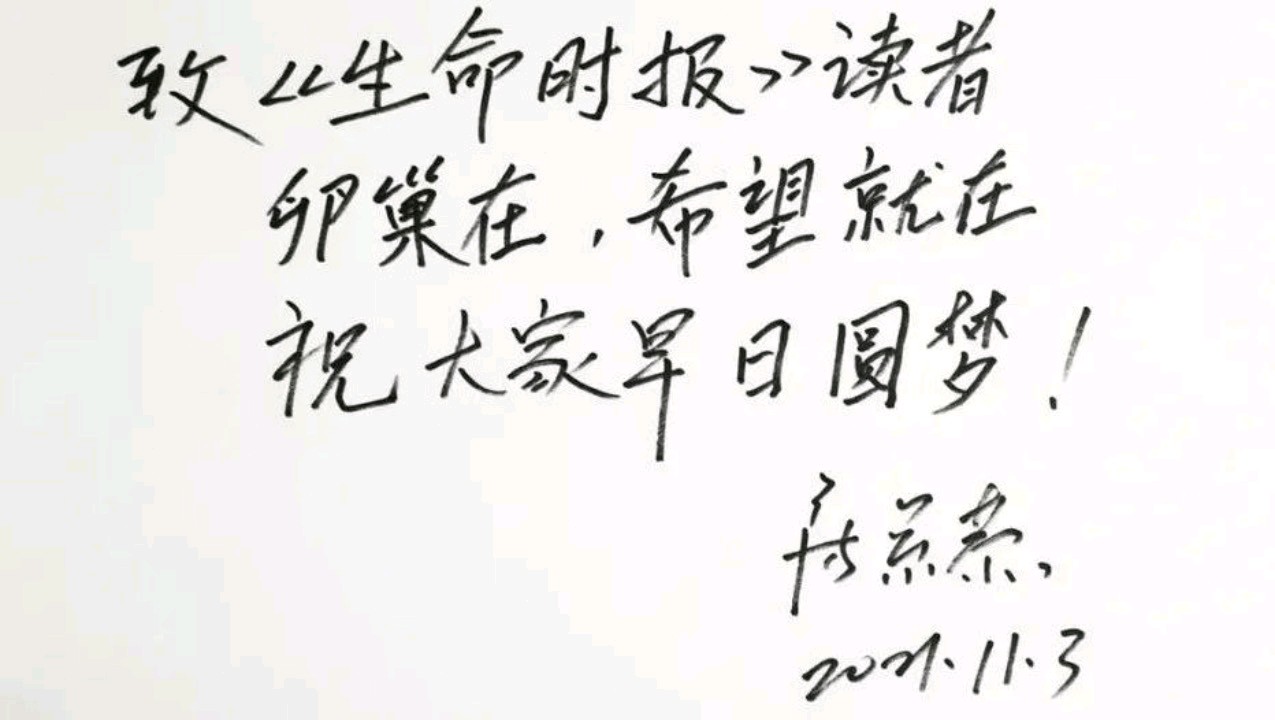 致《生命时报》读者
卵巢在，希望就在
祝大家早日圆梦！
2021.11.3